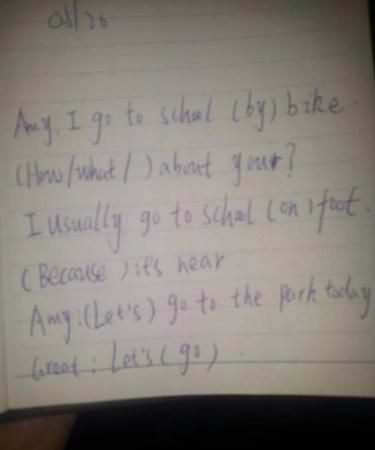 05/26
Amy, I go to school (by) bike.
(How/what/ ) about your?
I usually go to school (on) foot.
(Because) it's near.
Amy: (Let's) go to the park today
Great: Let's (go).